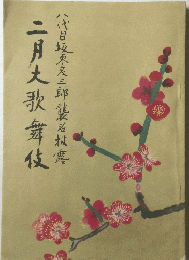 八代目坂東三津五郎 襲名披露
二月大歌舞伎